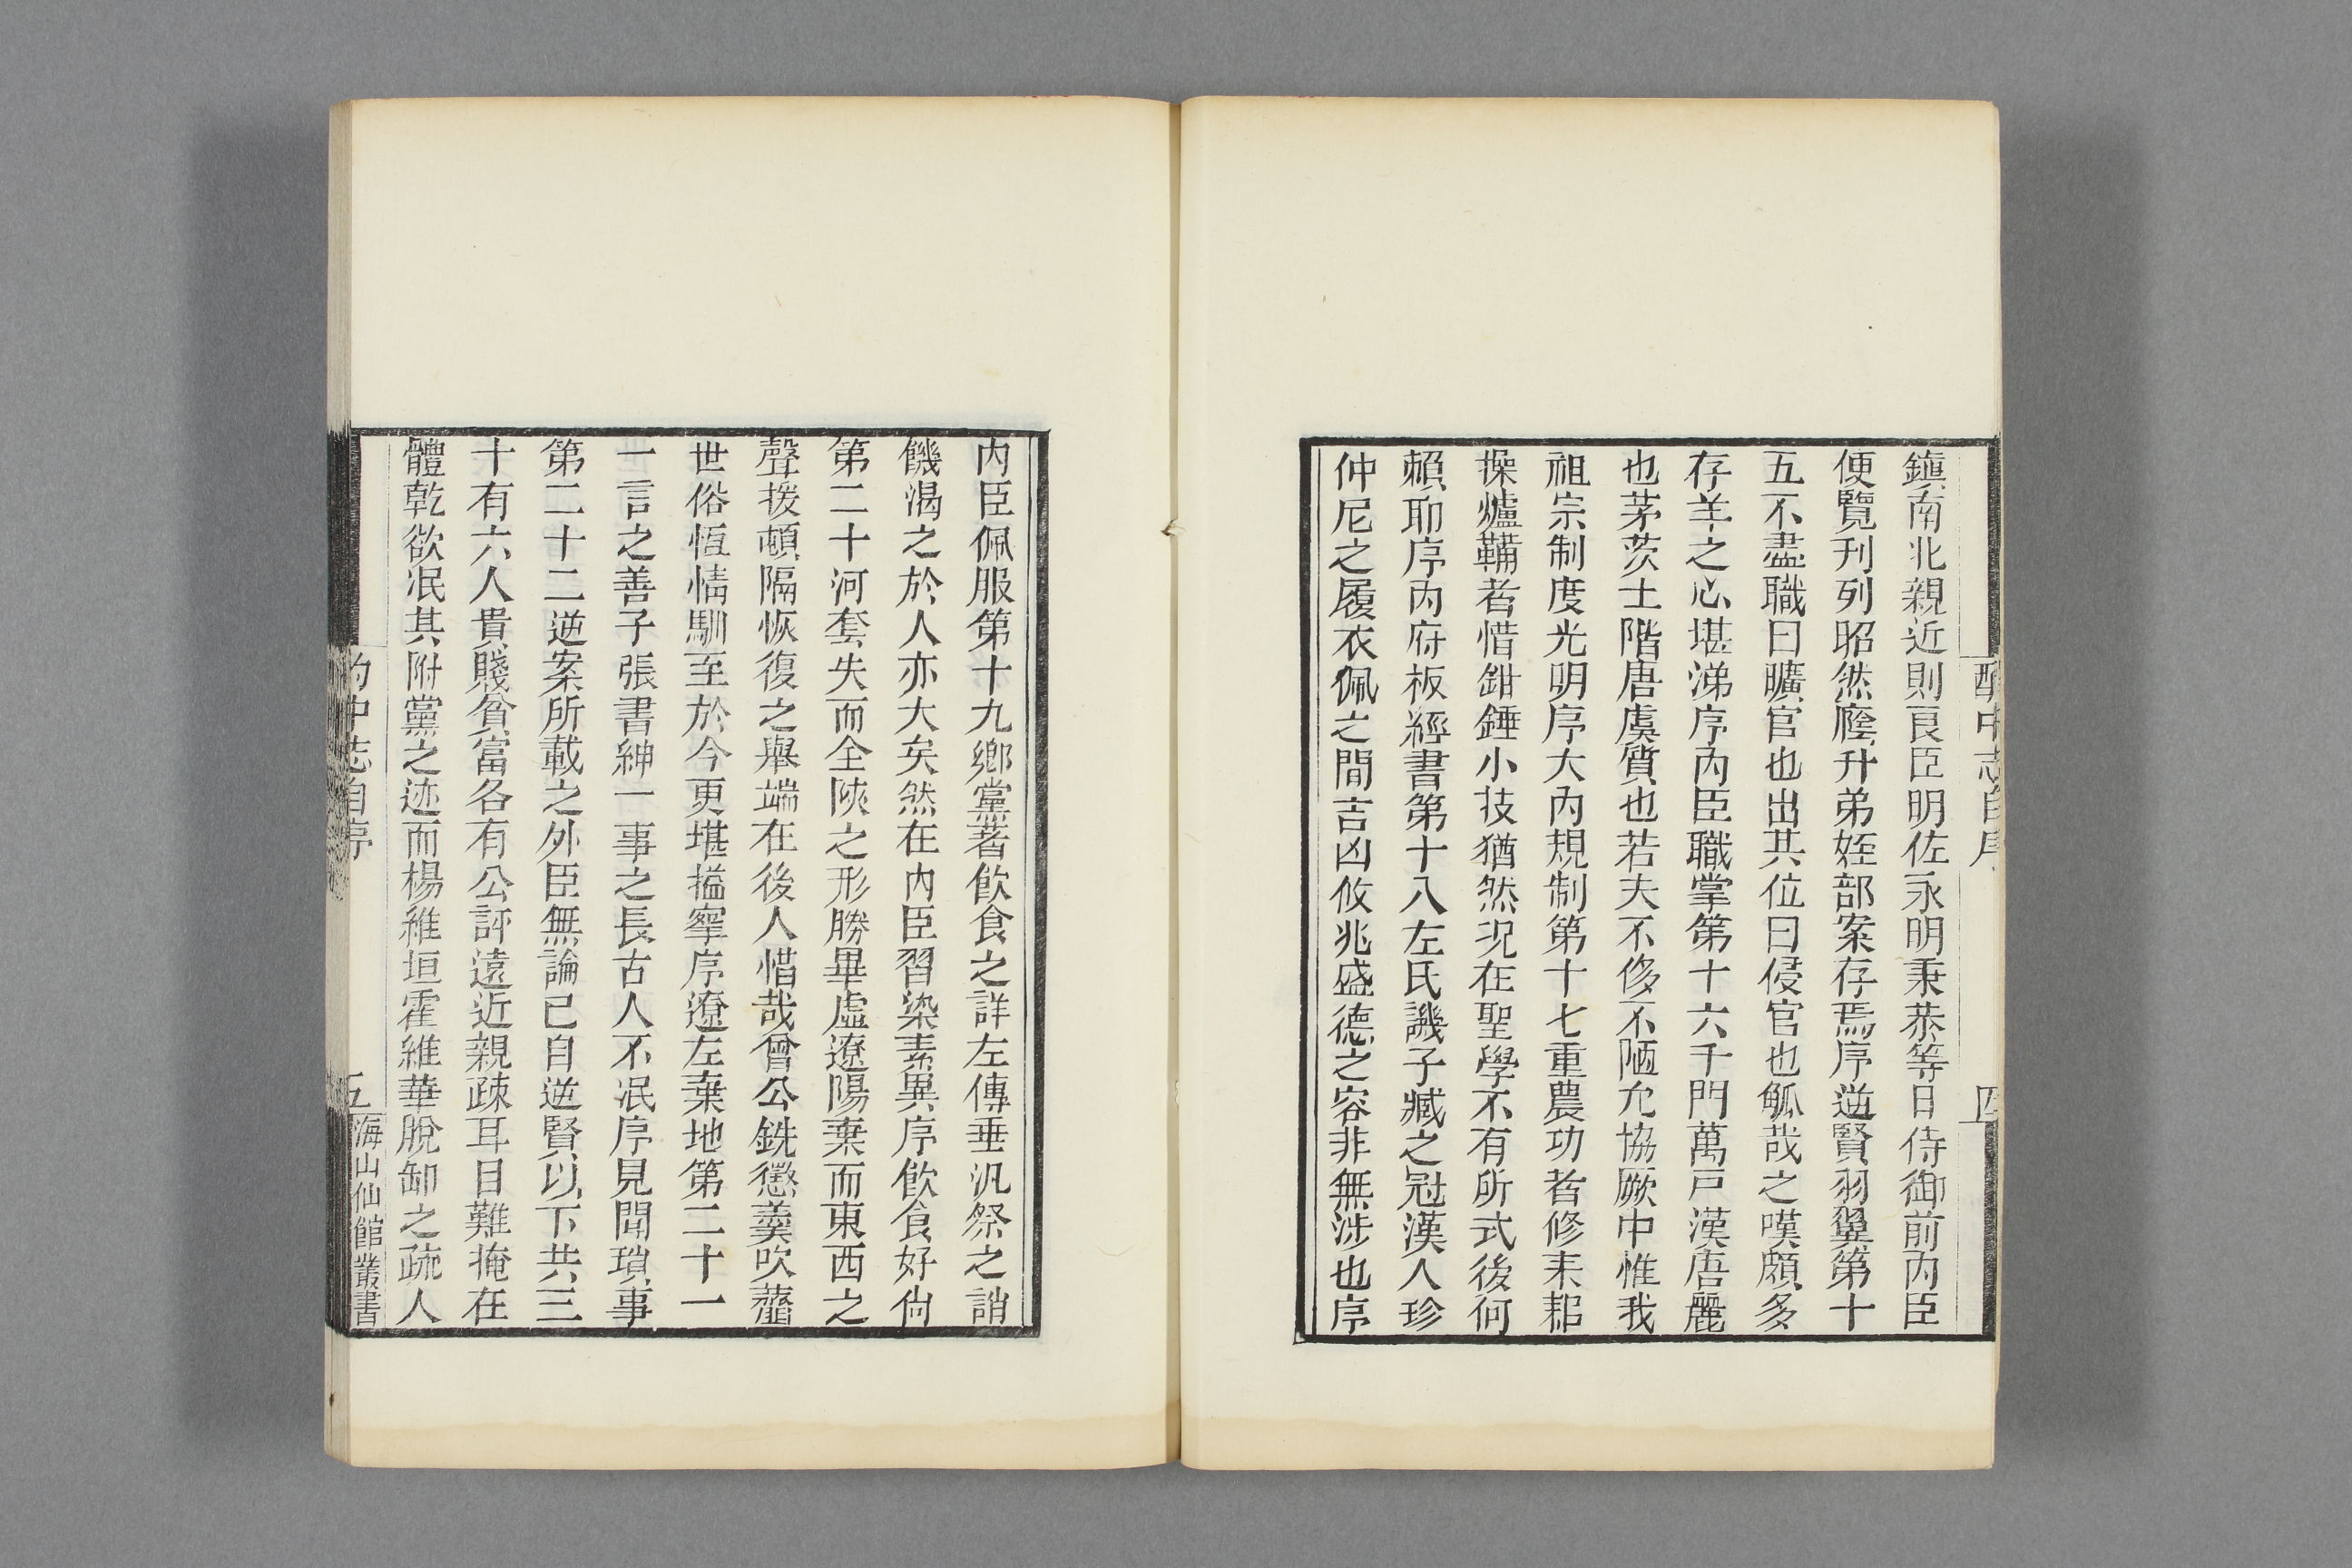 鎭南北親近則良臣明佐永明秉恭等日侍御前內臣
便覽刋列昭然廕升弟姪部案存焉序逆賢羽翼第十
五不盡職曰曠官也出其位曰侵官也觚哉之嘆頗多
存羊之心堪涕序內臣職掌第十六千門萬戸漢唐麗
也茅茨土階唐虞質也若夫不侈不陋允協厥中惟我
祖宗制度光明序大內規制第十七重農功者修耒耜
操爐鞴者惜鉗錘小技猶然況在聖學不有所式後何
賴耶序內府板經書第十八左氏譏子臧之冠漢人珍
仲尼之履衣佩之間吉凶攸兆盛德之容非無涉也序
酌中志自序
四
內臣佩服第十九鄉黨著飲食之詳左傳垂汎祭之誚
饑渴之於人亦大矣然在內臣習染素異序飲食好尙
第二十河套失而全陝之形勝畢虛遼陽棄而東西之
聲援頓隔恢復之舉端在後人惜哉曾公銑懲羹吹虀
世俗恆情馴至於今更堪搤掔序遼左棄地第二十一
一言之善子張書紳一事之長古人不泯序見聞瑣事
第二十二逆案所載之外臣無論已自逆賢以下共三
十有六人貴賤貧富各有公評遠近親疎耳目難掩在
體乾欲泯其附黨之迹而楊維垣霍維華脫卸之疏人
酌中志自序
五
海山仙館叢書